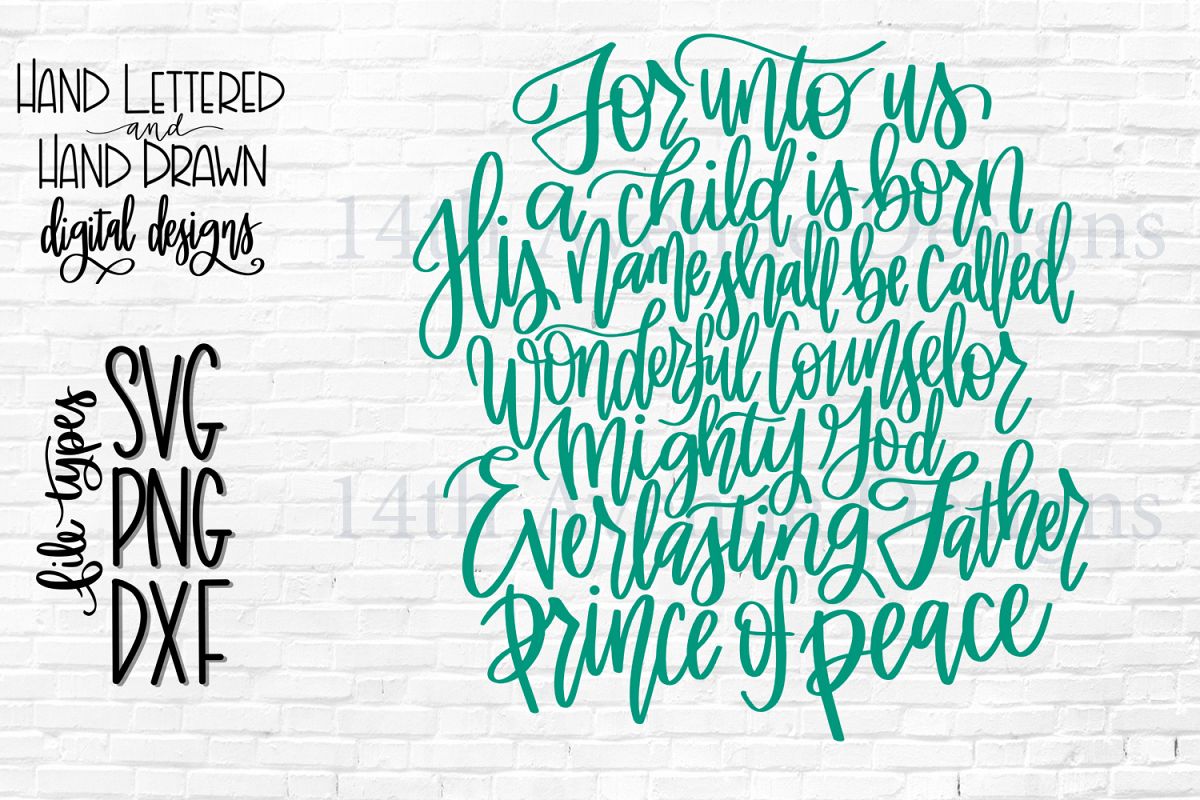 HAND LETTERED
and
HAND DRAWN
digital designs
file types
SVG
PNG
DXF
For unto us
a child is born
His name shall be called
Wonderful Counselor
Mighty God
Everlasting Father
Prince of peace
14th Avenue Designs
14th Avenue Designs